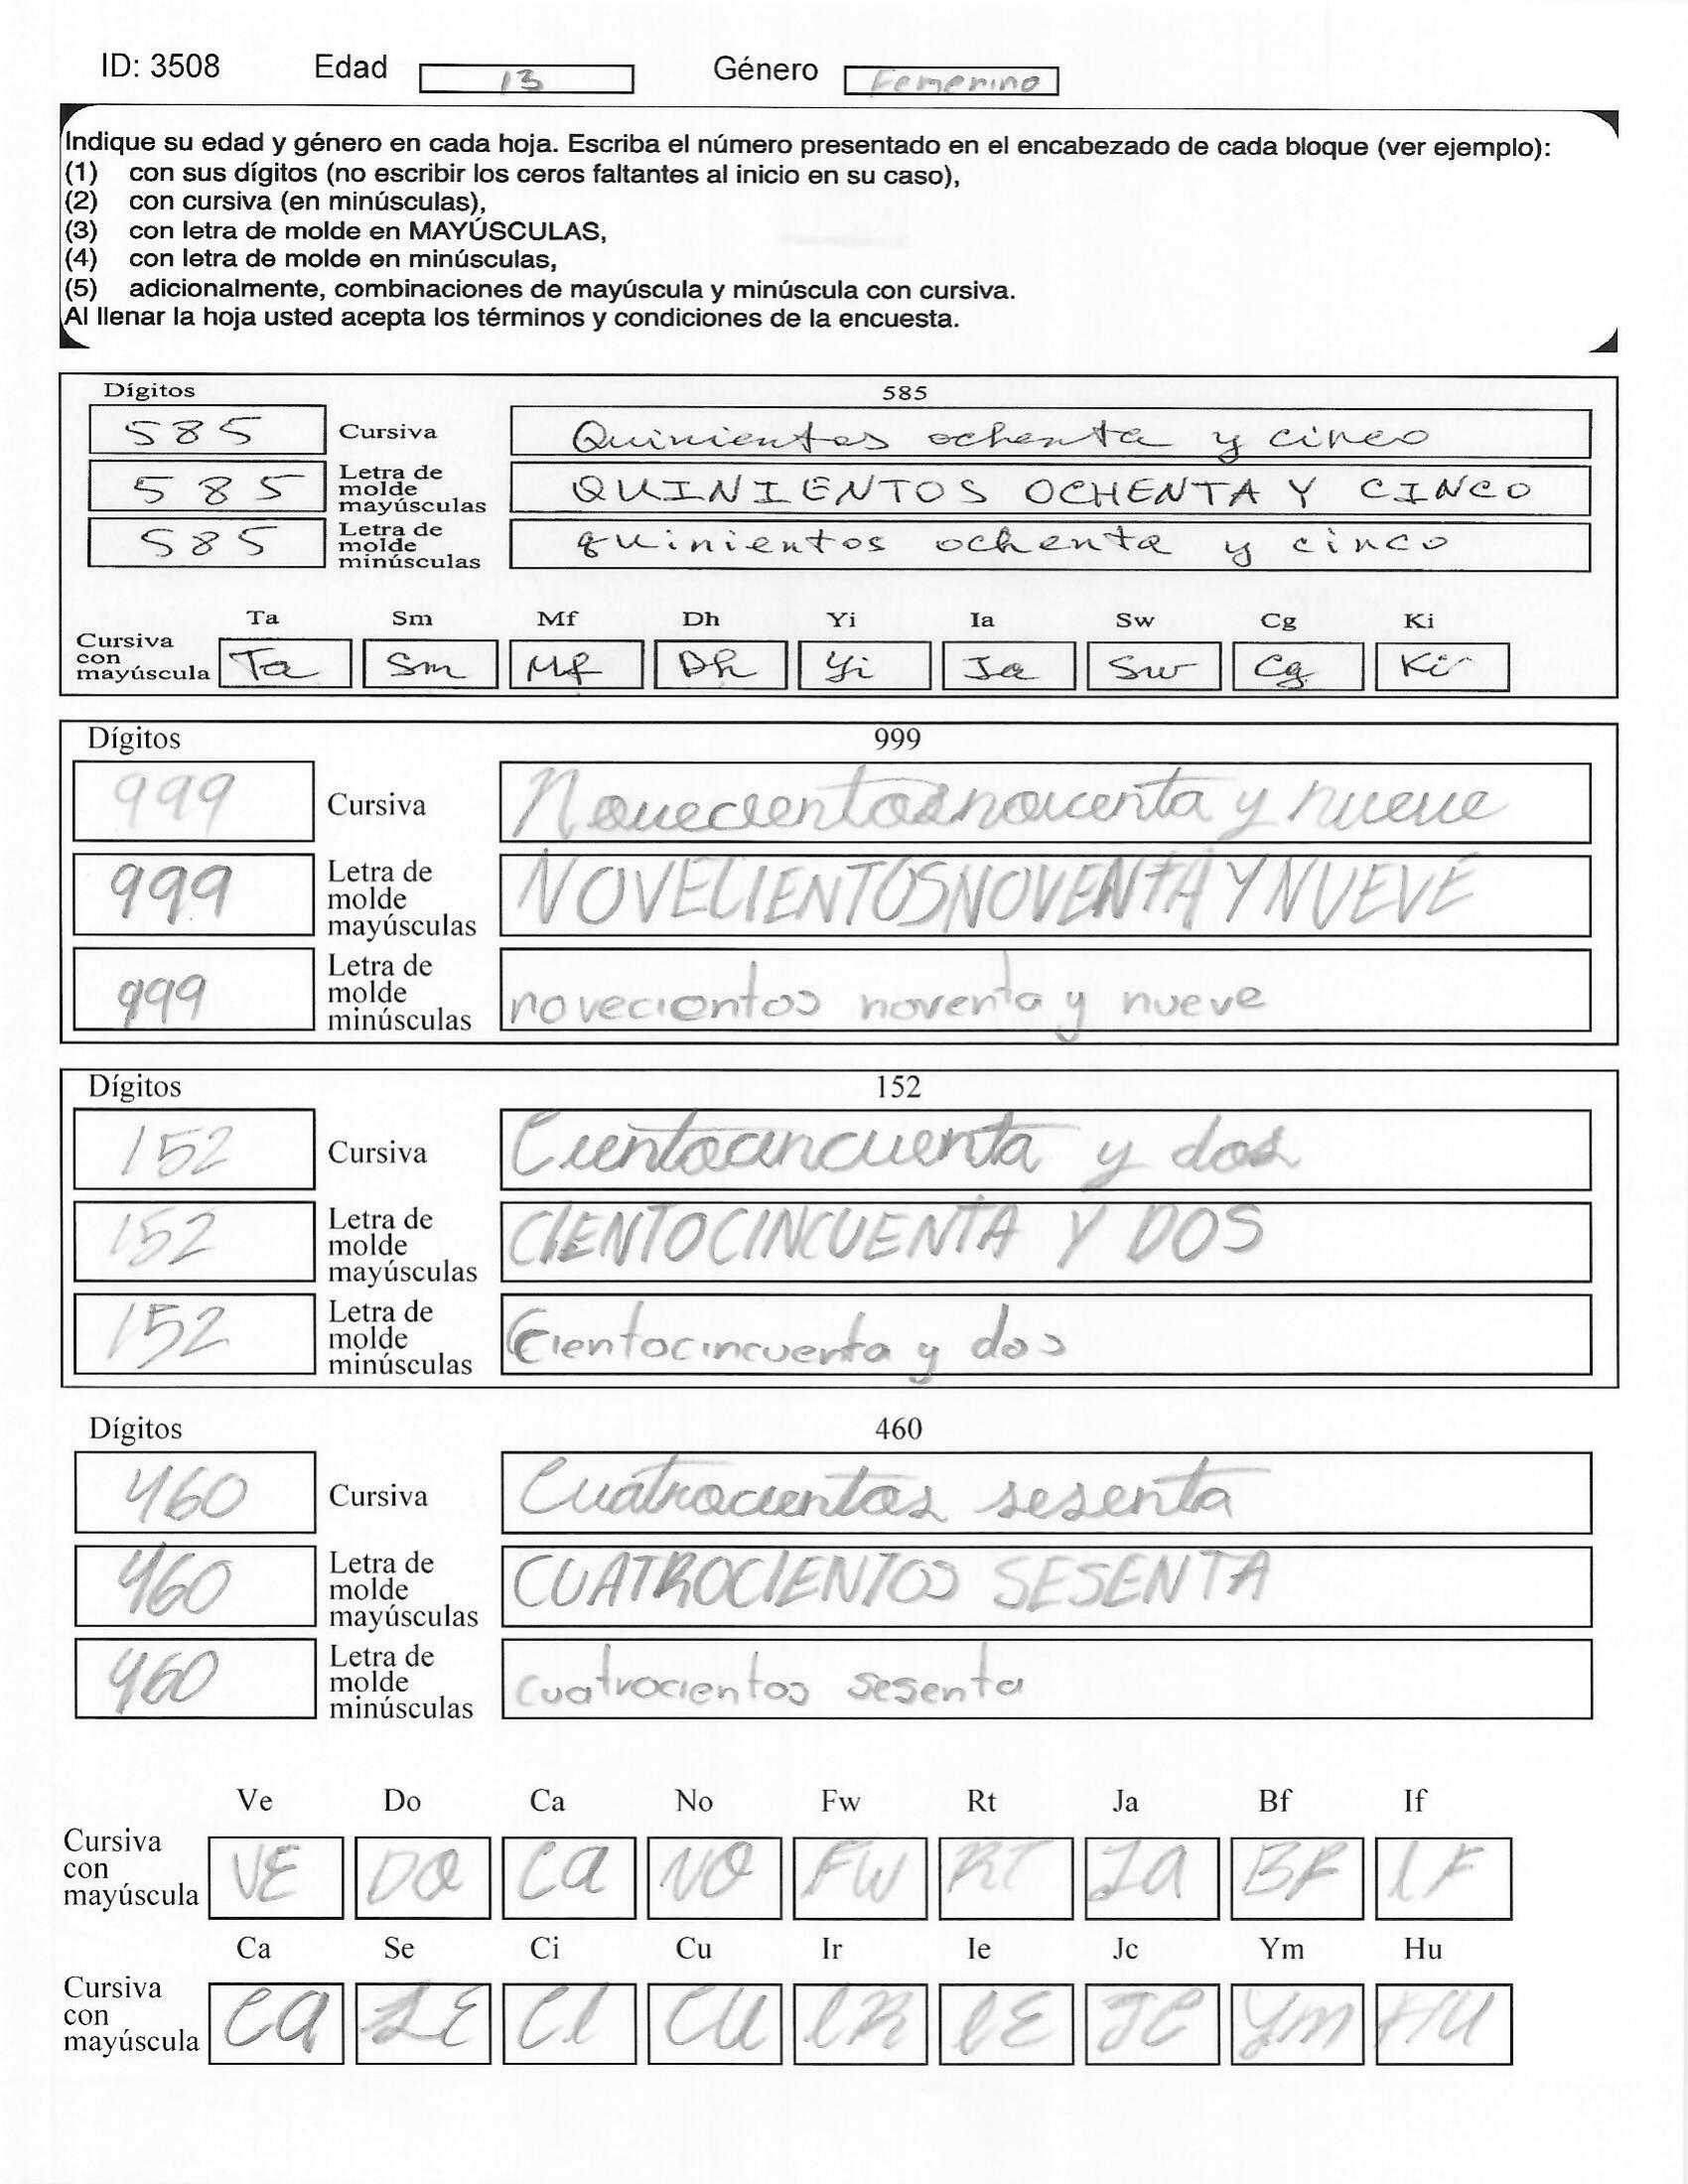 ID: 3508 Edad 13 Género Femenino
Indique su edad y género en cada hoja. Escriba el número presentado en el encabezado de cada bloque (ver ejemplo):
(1) con sus dígitos (no escribir los ceros faltantes al inicio en su caso),
(2) con cursiva (en minúsculas),
(3) con letra de molde en MAYÚSCULAS,
(4) con letra de molde en minúsculas,
(5) adicionalmente, combinaciones de mayúscula y minúscula con cursiva.
Al llenar la hoja usted acepta los términos y condiciones de la encuesta.
Dígitos 585
585 Cursiva Quinientos ochenta y cinco
585 Letra de molde mayúsculas QUINIENTOS OCHENTA Y CINCO
585 Letra de molde minúsculas quinientos ochenta y cinco
Ta Sm Mf Dh Yi Ia Sw Cg Ki
Cursiva con mayúscula Ta Sm Mf Dh Yi Ia Sw Cg Ki
Dígitos 999
999 Cursiva Novecientos noventa y nueve
999 Letra de molde mayúsculas NOVECIENTOS NOVENTA Y NUEVE
999 Letra de molde minúsculas novecientos noventa y nueve
Dígitos 152
152 Cursiva Cientocincuenta y dos
152 Letra de molde mayúsculas CIENTOCINCUENTA Y DOS
152 Letra de molde minúsculas Cientocincuenta y dos
Dígitos 460
460 Cursiva Cuatrocientos sesenta
460 Letra de molde mayúsculas CUATROCIENTOS SESENTA
460 Letra de molde minúsculas cuatrocientos sesenta
Ve Do Ca No Fw Rt Ja Bf If
Cursiva con mayúscula VE DO Ca NO FW RT JA BF IF
Ca Se Ci Cu Ir Ie Jc Ym Hu
Cursiva con mayúscula CA SE CI CU IR IE JC Ym HU